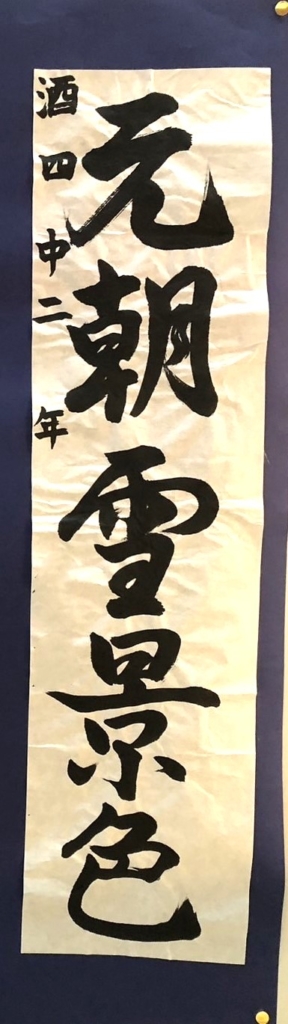 元朝雪景色
酒四中二年